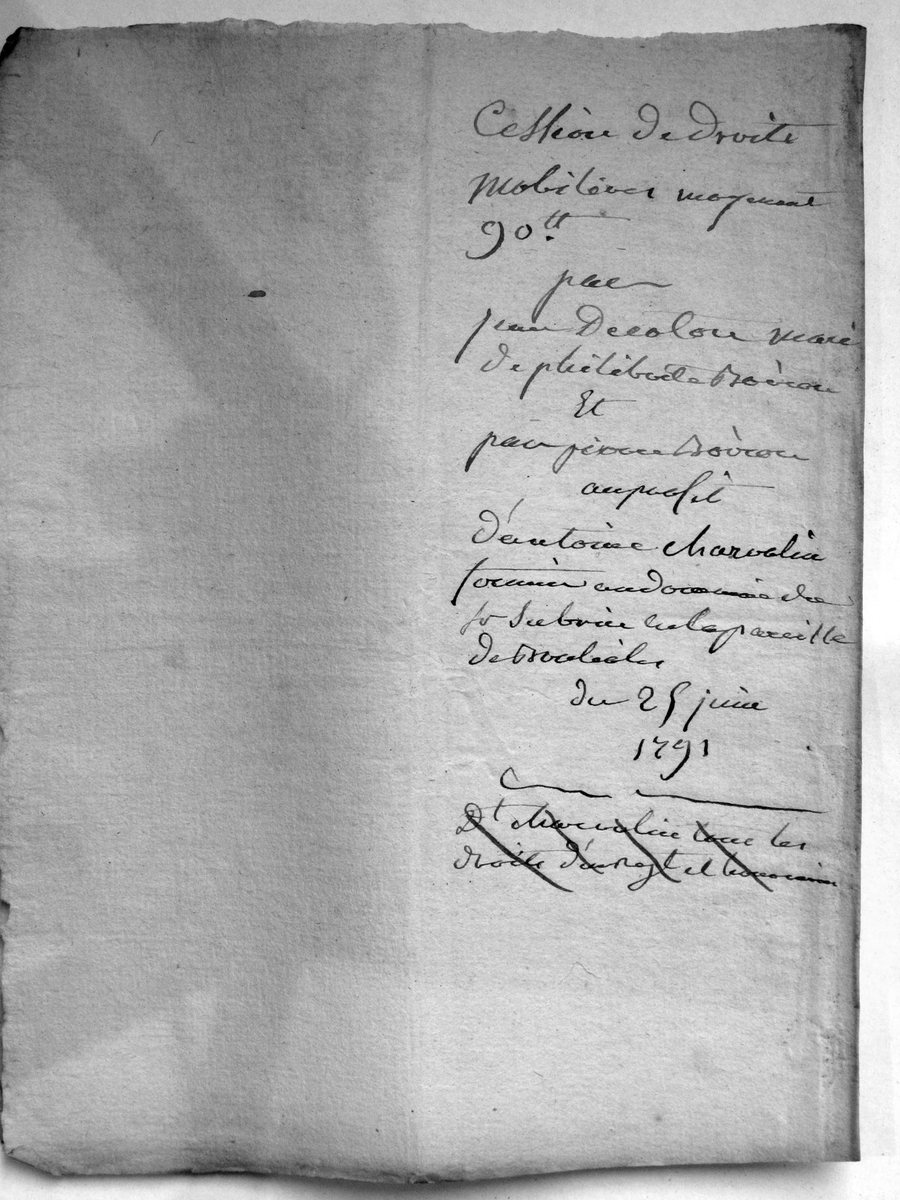 Cession de droits
mobiliers moyennant
90.tt
par
jean Decolon mari
de philiberte Boiron
Et
par pierre Boiron
au profit
d'antoine charvolin
fermier au domaine de
en la paroisse
de
du 25 juin
1791
Dt charvolin tous les
droits d'enregt et honoraires